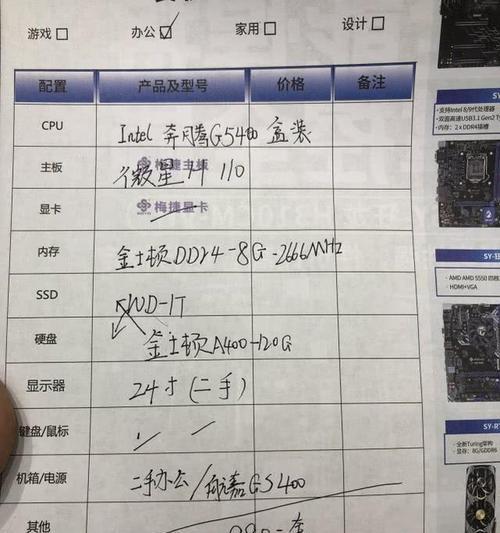 游戏 办公 家用 设计
配置 产品及型号 价格 备注
CPU Intel 奔腾G5400 盒装
主板 微星 H110
梅捷主板
显卡 梅捷显卡
内存 金士顿DDR4-8G-2666MHz
SSD WD-1T
硬盘 金士顿A400-120G
显示器 24寸(二手)
键盘/鼠标 / /
机箱/电源 二手办公/航嘉GS400
其他
SY
•支持Intel 8/9代处理器
•双面高速USB3.1 Gen2 Ty
•内存: 2 x DDR4插槽
SY-狂
•AMD AMD 5550 四核
•HDMI+VGA
SY-R
•全新Turing架构
•显存: 8G/GDDR6